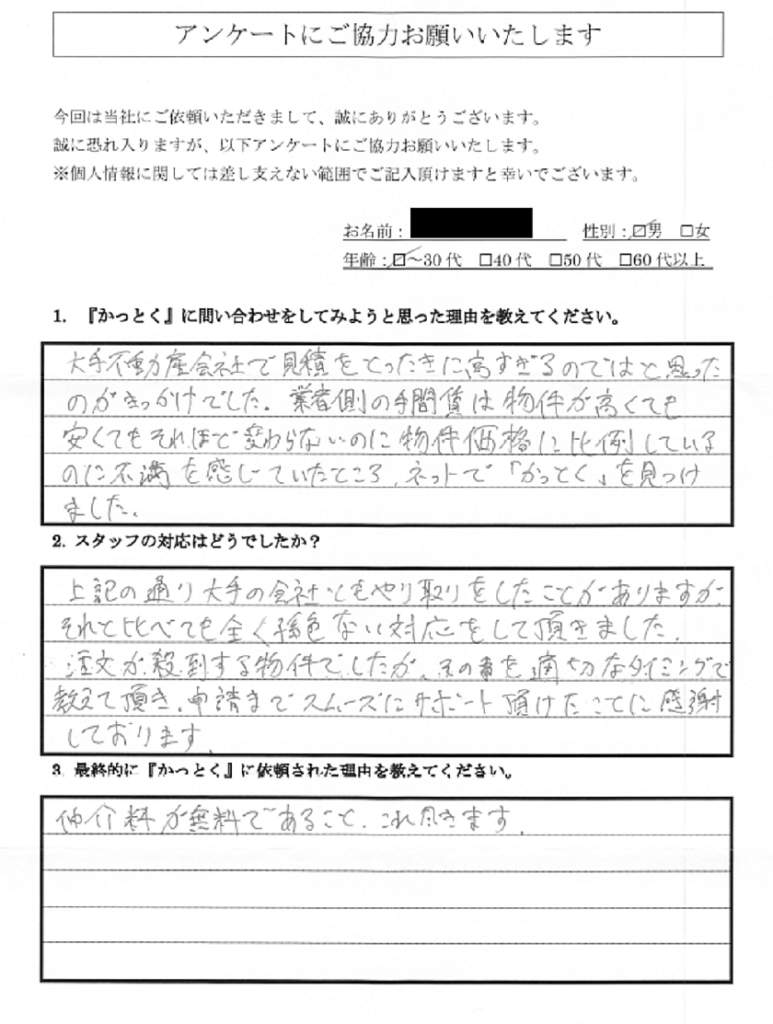 アンケートにご協力お願いいたします
今回は当社にご依頼いただきまして、誠にありがとうございます。
誠に恐れ入りますが、以下アンケートにご協力お願いいたします。
※個人情報に関しては差し支えない範囲でご記入頂けますと幸いでございます。
お名前: 性別:☑男 □女
年齢:☑~30代 □40代 □50代 □60代以上
1. 『かっとく』に問い合わせをしてみようと思った理由を教えてください。
大手不動産会社で見積をとったときに、高すぎるのではと思った
のがきっかけでした。業者側の手間賃は物件が高くても
安くてもそれほど変わらないのに物件価格に比例している
のに不満を感じていたところ、ネットで「かっとく」を見つけ
ました。
2. スタッフの対応はどうでしたか?
上記の通り大手の会社ともやり取りをしたことがありますが、
それと比べても全く遜色ない対応をして頂きました。
注文が殺到する物件でしたが、その旨を適切なタイミングで
教えて頂き、申請までスムーズにサポート頂けたことに感謝
しております。
3. 最終的に『かっとく』に依頼された理由を教えてください。
仲介料が無料であること、これ尽きます。